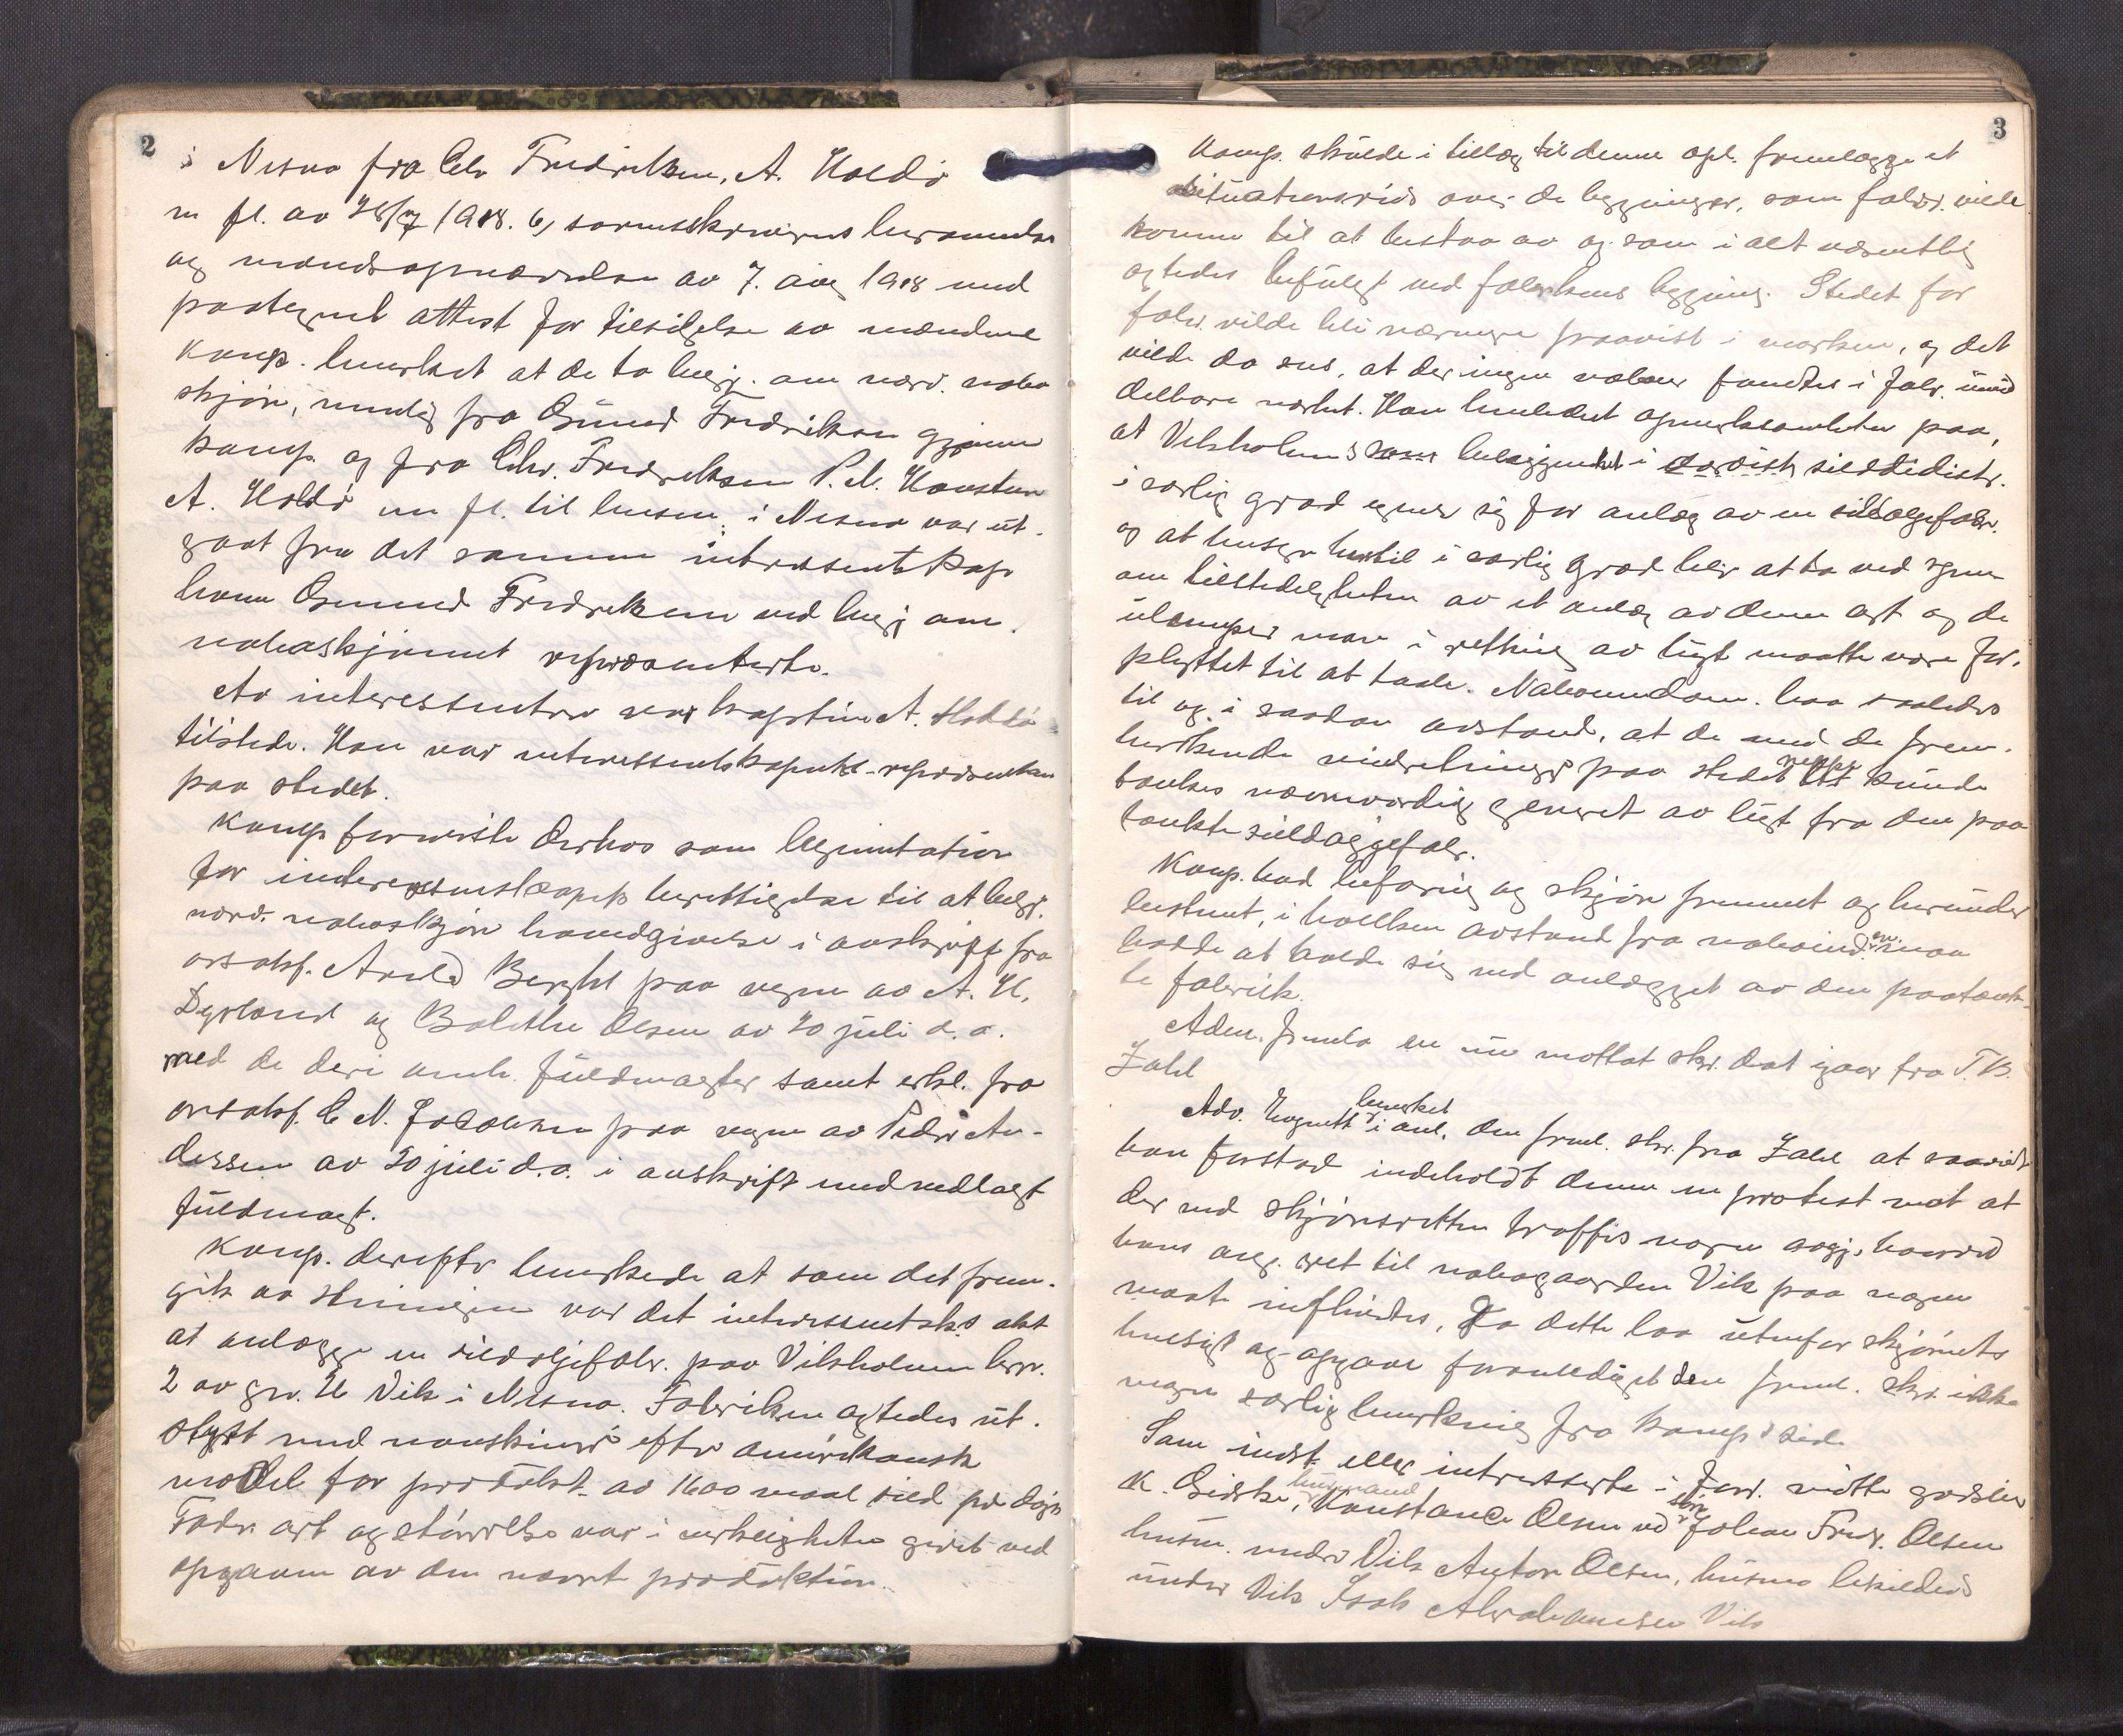 2
i Nesna fra Chr Fredriksen, A. Holdö
m fl. av 28/7 1918. 6, sorenskriverens berammelse
og mændsopnævnelse av 7. aug 1918 med
paategnet attest for tilsigelse av mændene
Komp. bemerket at de to begj. om nærv. nabo
skjøn, nemlig fra Osmund Fredriksen gjennem
komp. og fra Chr. Fredriksen P. M.
A. Holdö m fl. til lensm. i Nesna var ut-
gaat fra det samme interessentskap
hvem Osmund Fredriksen ved begj om
naboskjønnet repræsenterte.
Av interessenter var kaptein A. Holdö
tilstede. Han var interessentskapets repræsentant
paa stedet.
Komp fremviste derhos som legimitation
for interessentskapets berettigelse til at begj.
nærv. naboskjøn hævdgivelse i avskrift fra
o.r.sakf. Arnld Berghl paa vegne av A. H.
Dyrland og Bolethe Olsen av 20 juli d. a.
med de deri omh. fuldmagter samt erkl. fra
overretssakf. C N. Jacobsen paa vegne av Peder An-
dersen av 20 juli d.a. i avskrift med vedlagt
fuldmagt.
Komp. derefter bemerkede at som det frem-
gik av stevningen var det interessentsk.s akt
at anlægge en sildoljefabr. paa Vikholmen brn.
2 av gn. 11 Vik i Nesna. Fabrikken agtedes ut-
styrt med maskineri efter amerikansk
model for produkt. av 1600 maal sild pr døgn
Fabr art og størrelse var i virkeligheten givet ved
opgaven av den nævnte produktion.
3
Komp. skulde i tillæg til denne opl. fremlegge et
situationsrids over de bygninger, som fabr. vilde
komme til at bestaa av og som i alt væsentlig
agtedes befulgt ved fabrikens bygging. Stedet for
fabr. vilde bli nærmere paavist i marken, og det
vilde da sees, at der ingen naboer fandtes i fabr. umid
delbare nærhet. Han henledet opmerksomheten paa,
at Vikholmens beliggenhet i sildedistr.
i særlig grad egner sig for anlæg av en sildoljefabr.
og at hensyn hertil i særlig grad blir at ta ved spm
om tilstedeligheten av et anlæg av denne art og de
ulemper man i retning av lugt maatte være for-
pligtet til at taale. Naboeiendom. laa saaledes
til og i saadan avstand, at de med de frem-
herskende vindretninger paa stedet neppe kunde
tænkes nævneværdig generet av lugt fra den paa
tænkte sildoljefabr.
Komp. bad befaring og skjøn fremmet og herunder
bestemt, i hvilken avstand fra naboeiend.en man
hadde at holde sig med anlægget av den paatænk-
te fabrik.
Adm. fremla en nu mottat skr. dat igaar fra T. B.
Zahl
Adv. bemerket i anl. den freml. skr. fra Zahl at saavidt
han forstod indeholdt denne en protest mot at
der ved skjønsretten traffes nogen avgj. hvorved
hans angiv. ret til nabogaarden Vik paa nogen
maate influertes, Da dette laa utenfor skjønnets
hensigt og opgave foranlediget den freml. skr. ikke
nogen særlig bemerkning fra komp's side
Som indst. eller interesserte i forr. møtte godseier
K. Gidske, husmand Konstance Olsen ved sön Johan Fredr. Olsen
husm. under Vik Anton Olsen, husm.
under Vik Isak Abrahamsen Vik